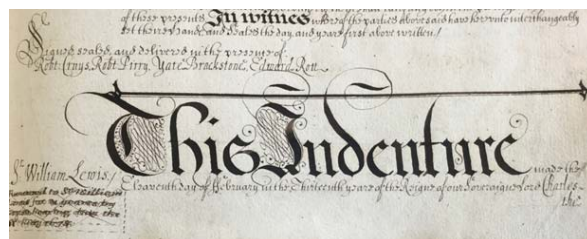 of these presents In witnes whereof the parties abovesaid have hereunto interchangeably
set their hands and seales the day and yeare first above written/
Signed sealed and delivered in the presence of:
Robt: Robt Pirry, Yate Brackstone, Edward Rott
This Indenture made the
Eleaventh day of ffebruary in the Thirteenth yeare of the Reigne of our Soveraigne Lord Charles
the
Sr. William Lewis/